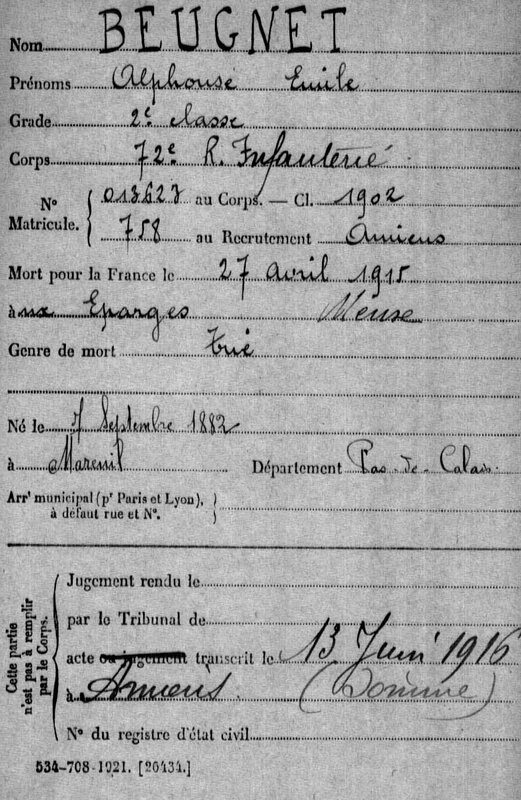 Nom BEUGNET
Prénoms Alphonse Emile
Grade 2e classe
Corps 72e R. Infanterie
No Matricule. 013627 au Corps. — Cl. 1902
758 au Recrutement Amiens
Mort pour la France le 27 avril 1915
à ux Eparges Meuse
Genre de mort tué
Né le 7 Septembre 1882
à Mareuil Département Pas-de-Calais
Arrt municipal (pr Paris et Lyon),
à défaut rue et No.
Cette partie n'est pas à remplir par le Corps.
Jugement rendu le
par le Tribunal de
acte ou jugement transcrit le 13 Juin 1916
à Amiens (Somme)
No du registre d'état civil
534-708-1921. [26434.]